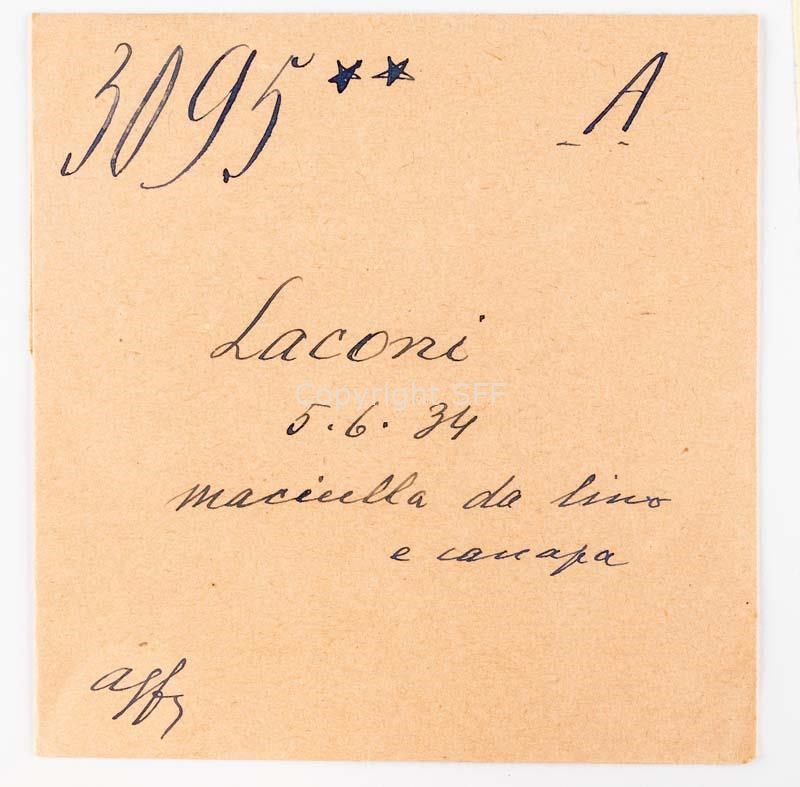 3095 ★★ A
Laconi
Copyright SFF
5.6.34
maciulla da lino
e canapa